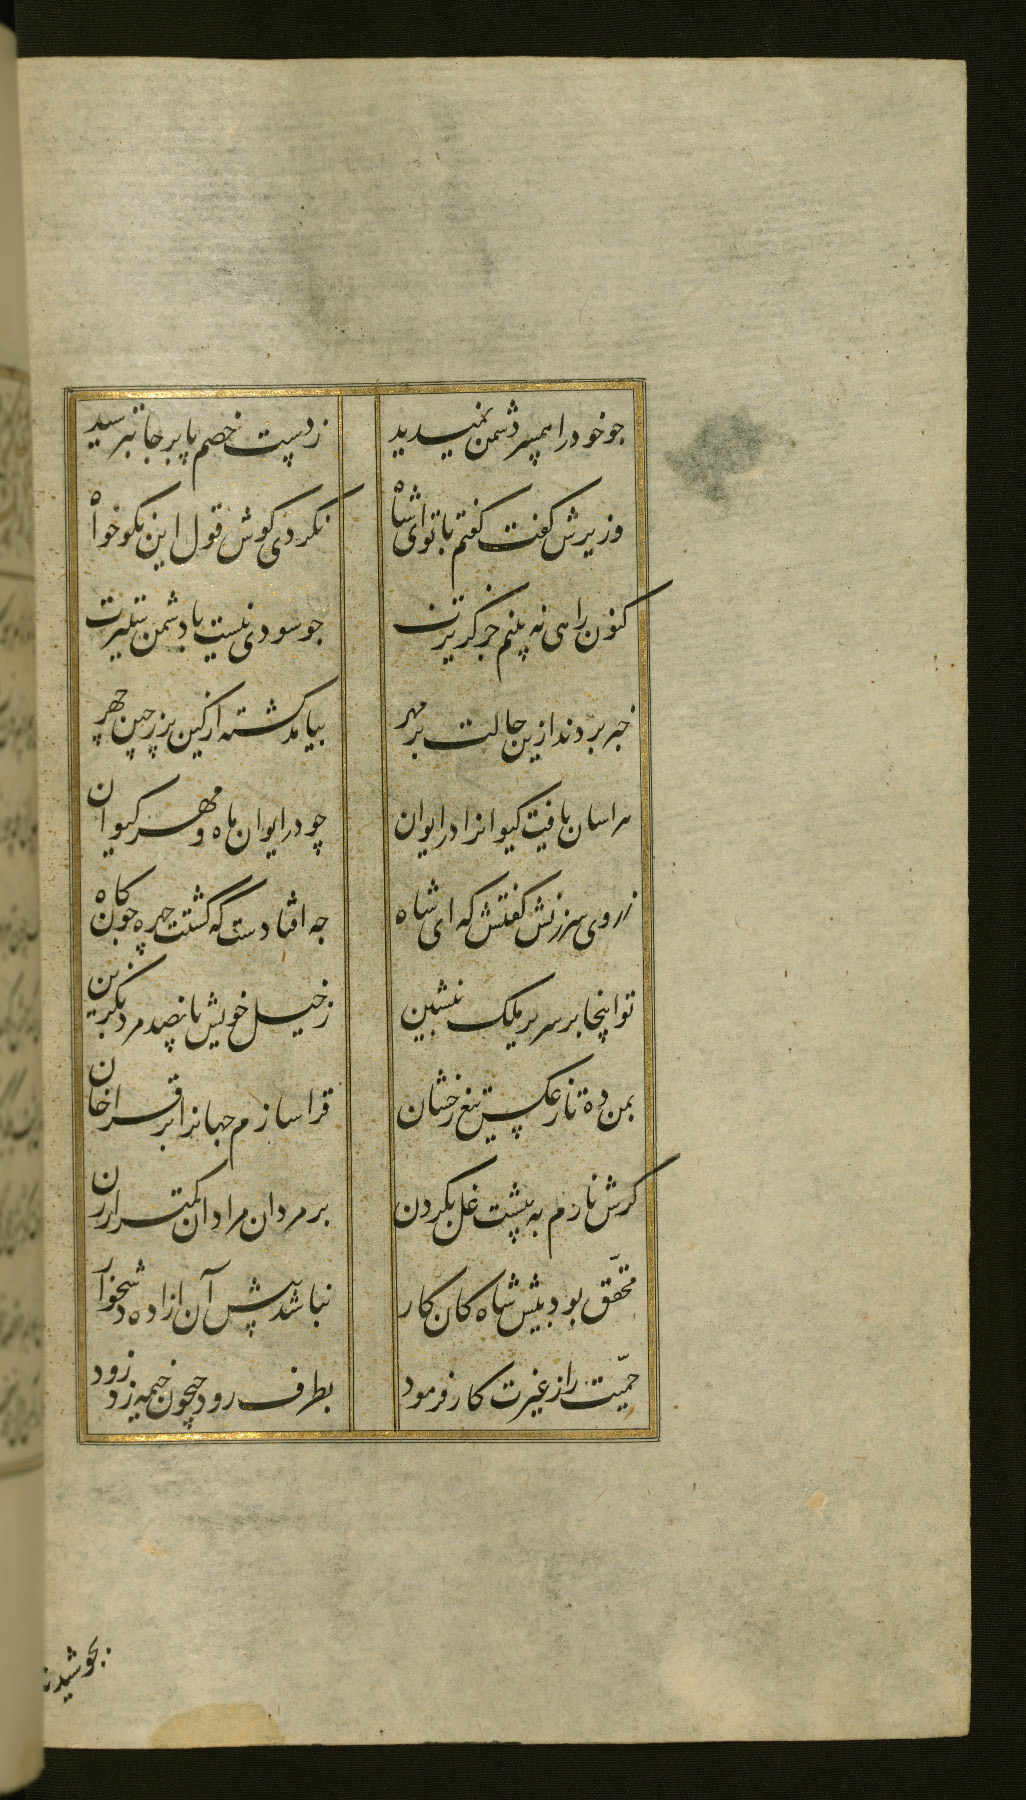 جو خود را همسر دشمن نمیدید ز دست خصم پا برجا نترسید
وزیرش کفت کفتم با تو ای شاه نکردی کوش قول این نکو خواه
کنون راهی نه بینم جز کریزت جو سودی نیست با دشمن ستیزت
خبر بردند ازین حالت بر مهر بیامد کشته از کین پر ز چین چهر
هراسان یافت کیوانرا در ایوان چو در ایوان ماه و مهر کیوان
ز روی سرزنش کفتش که ای شاه جه افتادست که کشتت چهره جون کاه
تو اینجا بر سریر ملک بنشین ز خیل خویش پانصد مرد بکزین
بمن ده تا ز عکس تیغ رخشان قرا سازم جهانرا بر قراخان
کرش نارم به پیشت غل بکردن بر مردان مرا دان کمتر از زن
محقّق بود پیش شاه کان کار نباشد پیش آن ازاده دشخوار
حمّیت را ز غیرت کار فرمود بطرف رود جیحون خیمه زد زود
بجوشیدند